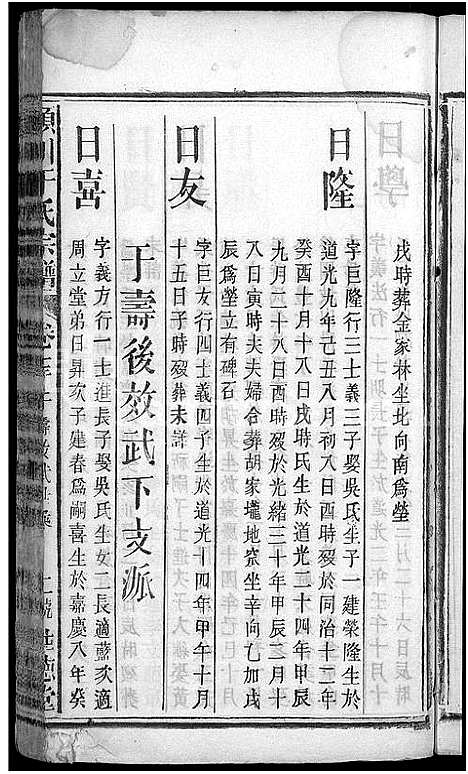 戌時葬金家林坐北向南爲塋
日隆
字巨隆行三士義三子娶吳氏生子一建榮隆生於
道光九年己丑八月初八日酉時歿於同治十二年
癸酉十月十八日戌時氏生於道光二十四年甲辰
九月二十八日酉時歿於光緒三十年甲辰二月十
八日寅時夫夫婦合葬胡家壠地窯坐辛向乙加戌
辰爲塋立有碑石
日友
字巨友行四士義四子生於道光十四年甲午十月
十五日子時歿葬未詳
于壽後效武下支派
日喜
字義方行一士進長子娶吳氏生女二長適藍次適
周立堂弟日昇次子建春爲嗣喜生於嘉慶八年癸
于氏宗譜